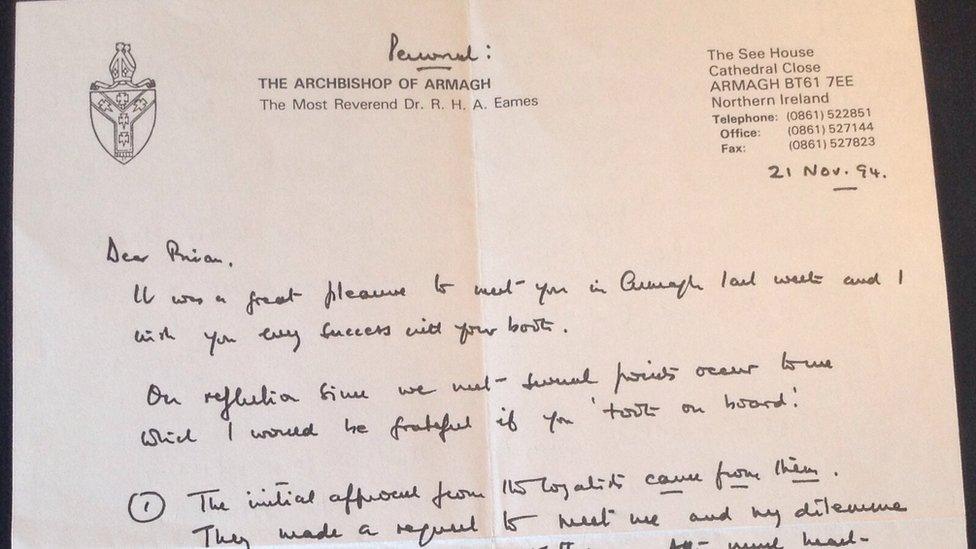 Personal:
THE ARCHBISHOP OF ARMAGH
The Most Reverend Dr. R. H. A. Eames
The See House
Cathedral Close
ARMAGH BT61 7EE
Northern Ireland
Telephone: (0861) 522851
Office: (0861) 527144
Fax: (0861) 527823
21 Nov. 94.
Dear Brian,
It was a great pleasure to meet you in Armagh last week and I
wish you every success with your book.
On reflection since we met several points occur to me
which I would be grateful if you 'took on board'.
① The initial approach from the loyalists came from them.
They made a request to meet me and my dilemma